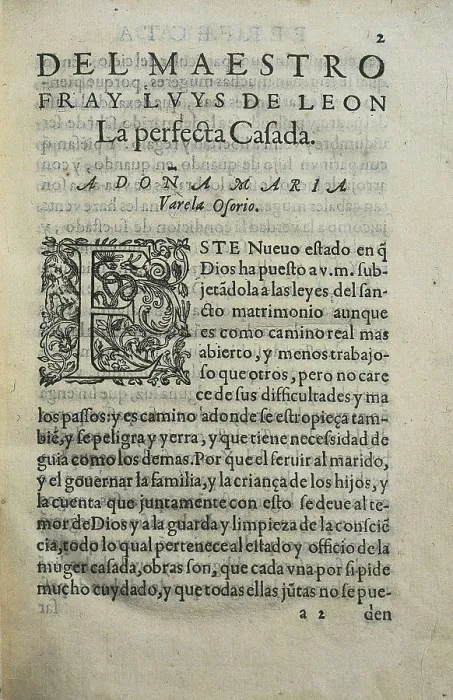 2
DEL MAESTRO
FRAY LVYS DE LEON
La perfecta Casada.
A DOÑA MARIA
Varela Osorio.
ESTE Nueuo estado en q̃
Dios ha puesto a v.m. sub-
jetãdola a las leyes del san-
cto matrimonio aunque
es como camino real mas
abierto, y menos trabajo-
so que otros, pero no care
ce de sus difficultades y ma
los passos: y es camino adonde se estropieça tam-
biẽ, y se peligra y yerra, y que tiene necessidad de
guia como los demas. Por que el seruir al marido,
y el gouernar la familia, y la criança de los hijos, y
la cuenta que juntamente con esto se deue al te-
mor de Dios y a la guarda y limpieza de la consciẽ
cia, todo lo qual pertenece al estado y officio de la
muger casada, obras son, que cada vna por si pide
mucho cuydado, y que todas ellas jũtas no se pue-
a 2 den